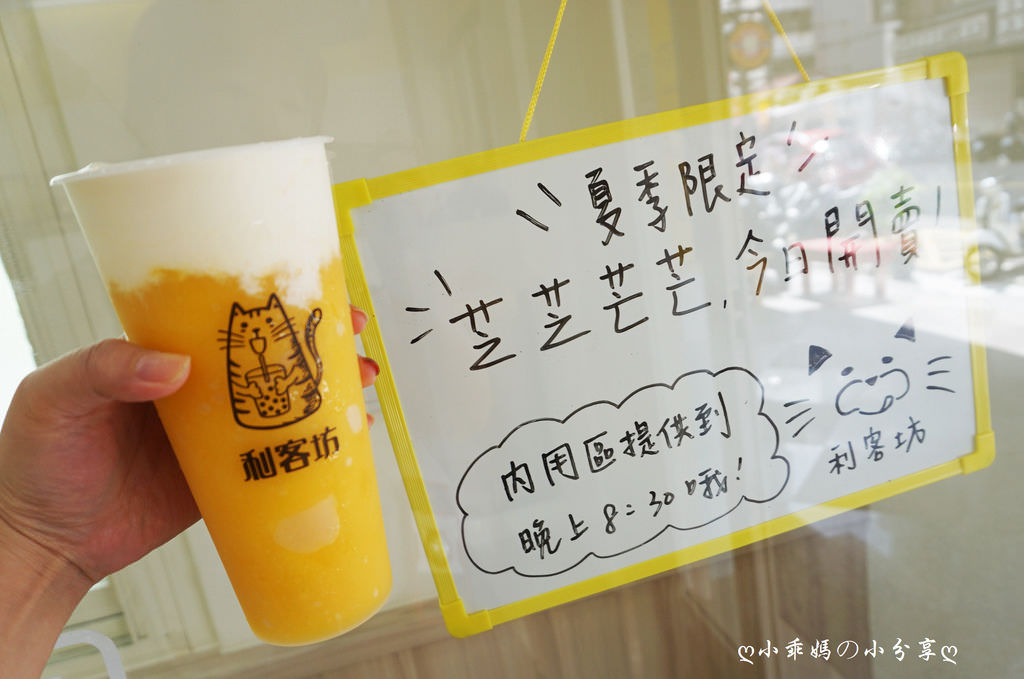 利客坊
夏季限定
芝芝芒芒,今日開賣!
內用區提供到
晚上8:30哦!
利客坊
ღ小乖媽の小分享ღ